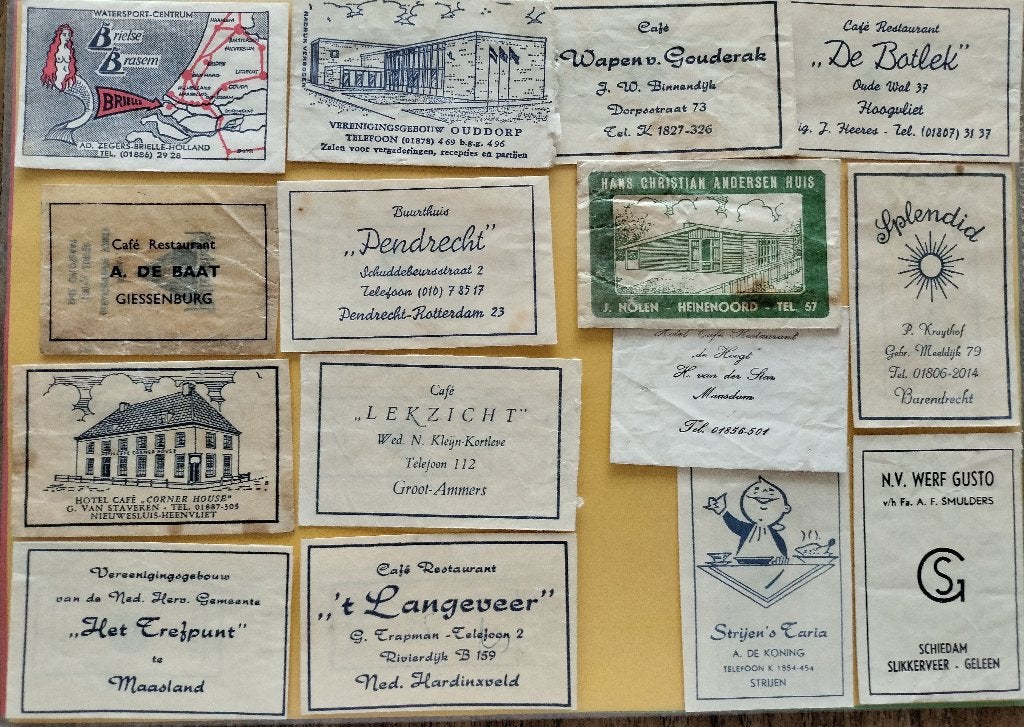 WATERSPORT-CENTRUM
Brielse
Brasem
BRIELLE
AD. ZEGERS-BRIELLE-HOLLAND
TEL. (01886) 29 28
NADRUK VERBODEN
VERENIGINGSGEBOUW OUDDORP
TELEFOON (01878) 469 b.g.g. 496
Zalen voor vergaderingen, recepties en partijen
Café
Wapen v. Gouderak
J. W. Binnendijk
Dorpsstraat 73
Tel. K 1827-326
Café Restaurant
„De Botlek”
Oude Wal 37
Hoogvliet
ig. J. Heeres - Tel. (01807) 31 37
Café Restaurant
A. DE BAAT
GIESSENBURG
Buurthuis
„Pendrecht”
Schuddebeursstraat 2
Telefoon (010) 7 85 17
Pendrecht-Rotterdam 23
HANS CHRISTIAN ANDERSEN HUIS
J. NOLEN - HEINENOORD - TEL. 57
Splendid
P. Kruythof
Gebr. Meeldijk 79
Tel. 01806-2014
Barendrecht
Hotel Café Restaurant
de Hoogt”
H. van der Star
Maasdam
Tel. 01856-501
CORNER HOUSE
HOTEL CAFÉ „CORNER HOUSE”
G. VAN STAVEREN - TEL. 01887-305
NIEUWESLUIS-HEENVLIET
Café
„LEKZICHT”
Wed. N. Kleijn-Kortleve
Telefoon 112
Groot-Ammers
N.V. WERF GUSTO
v/h Fa. A. F. SMULDERS
GS
SCHIEDAM
SLIKKERVEER - GELEEN
Vereenigingsgebouw
van de Ned. Herv. Gemeente
„Het Trefpunt”
te
Maasland
Café Restaurant
„'t Langeveer”
G. Trapman - Telefoon 2
Rivierdijk B 159
Ned. Hardinxveld
Strijen's Taria
A. DE KONING
TELEFOON K 1854-454
STRIJEN